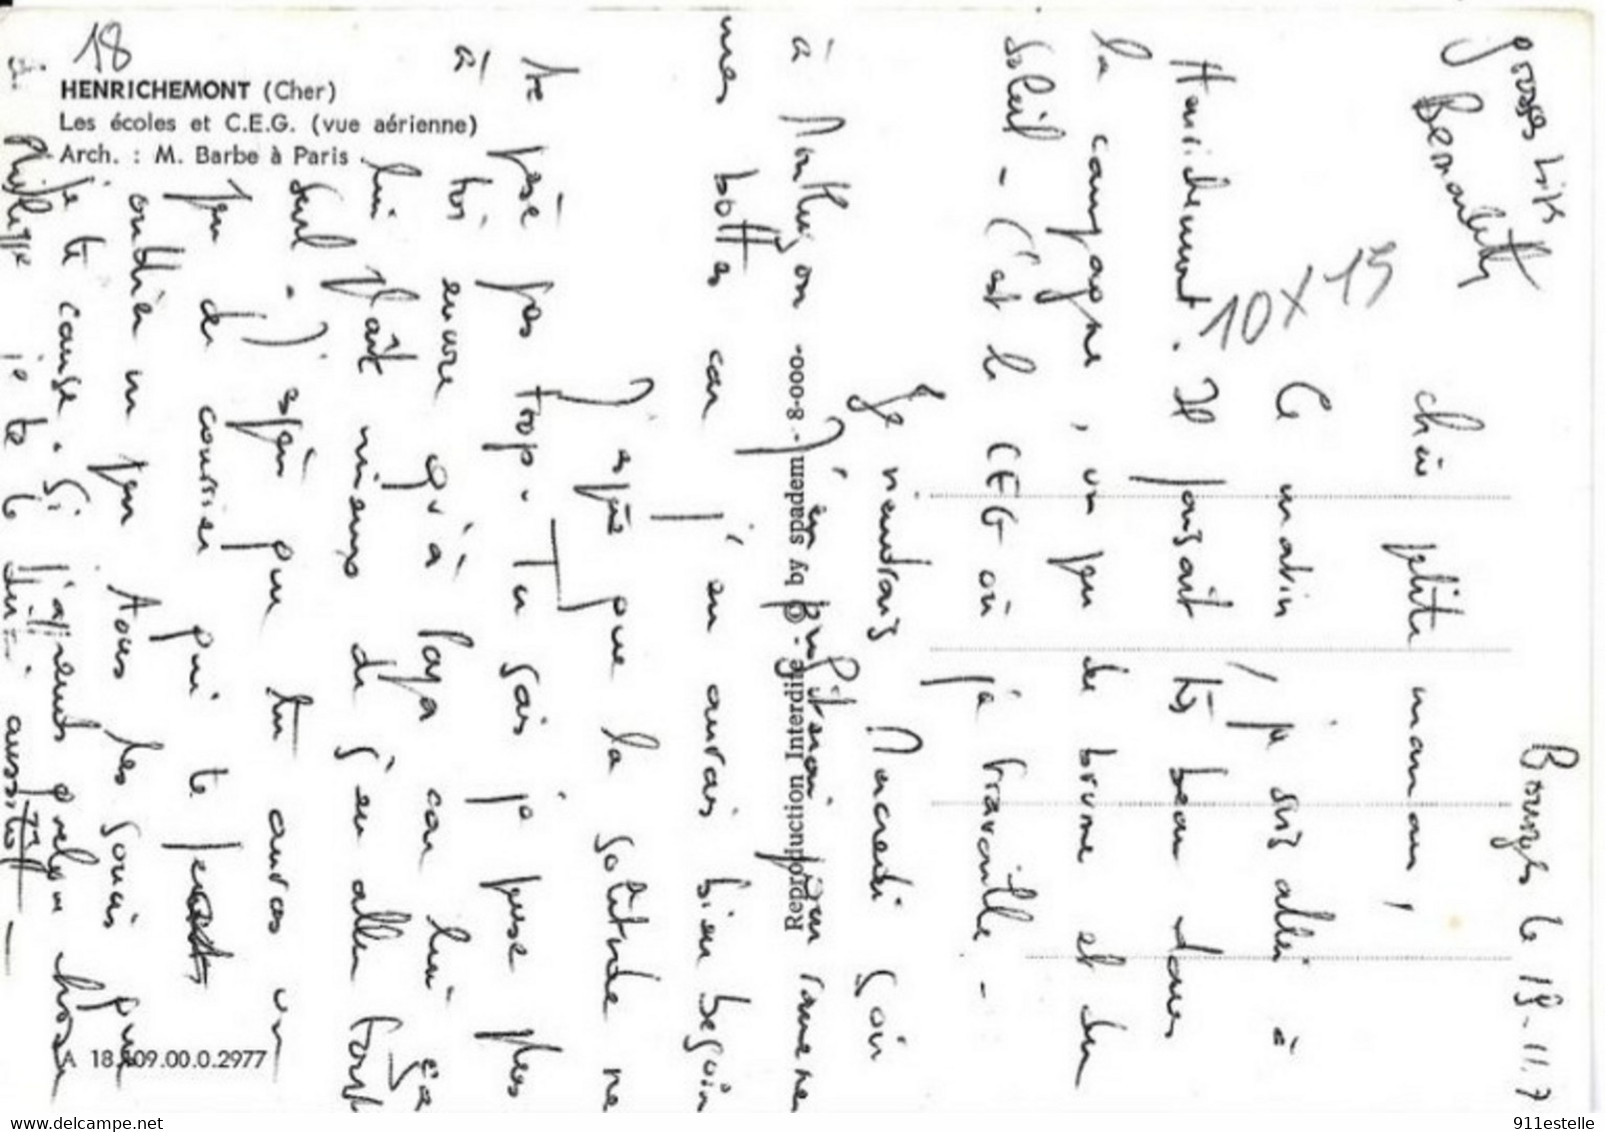 18
HENRICHEMONT (Cher)
Les écoles et C.E.G. (vue aérienne)
Arch. : M. Barbe à Paris
Reproduction Interdite - © by spadem - 8-000-
A 18.109.00.0.2977
10 x 15
Bourges le 19-11-7
chère petite maman,
Ce matin, je suis allée à
Henrichemont. Il faisait très beau dans
la campagne, un peu de brume et du
soleil - C'est le CEG où je travaille -
Je viendrais Mercredi soir
à Montluçon - J'en profiterai pour ramener
mes bottes car j'en aurais bien besoin
J'espère que la solitude ne
te pèse pas trop. Tu sais je pense plus
à toi encore qu'à Papa car lui ça
lui plaît mieux de s'en aller tout
seul. J'espère que tu auras un
peu de courrier qui te fera
oublier un peu tous les soucis que
je te cause. Si j'apprends quelque chose
je te le dirai aussitôt -
grosses bises
Bernadette